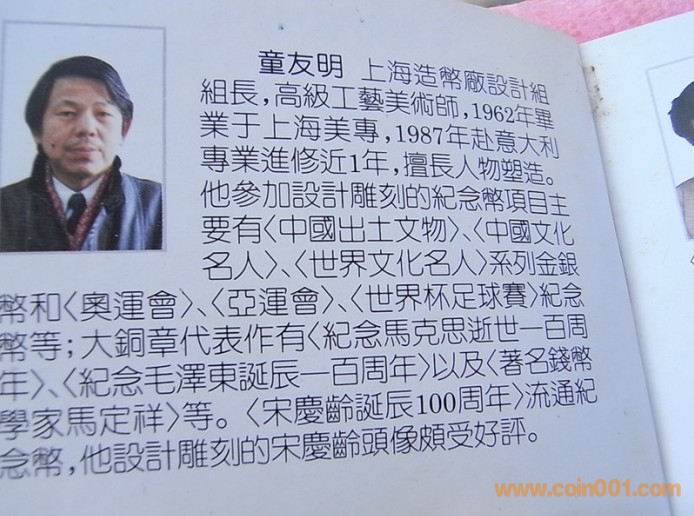 童友明 上海造幣廠設計組
組長，高級工藝美術師，1962年畢
業于上海美專，1987年赴意大利
專業進修近1年，擅長人物塑造。
他參加設計雕刻的紀念幣項目主
要有〈中國出土文物〉、〈中國文化
名人〉、〈世界文化名人〉系列金銀
幣和〈奧運會〉、〈亞運會〉、〈世界杯足球賽〉紀念
幣等；大銅章代表作有〈紀念馬克思逝世一百周
年〉、〈紀念毛澤東誕辰一百周年〉以及〈著名錢幣
學家馬定祥〉等。〈宋慶齡誕辰100周年〉流通紀
念幣，他設計雕刻的宋慶齡頭像頗受好評。
www.coin001.com